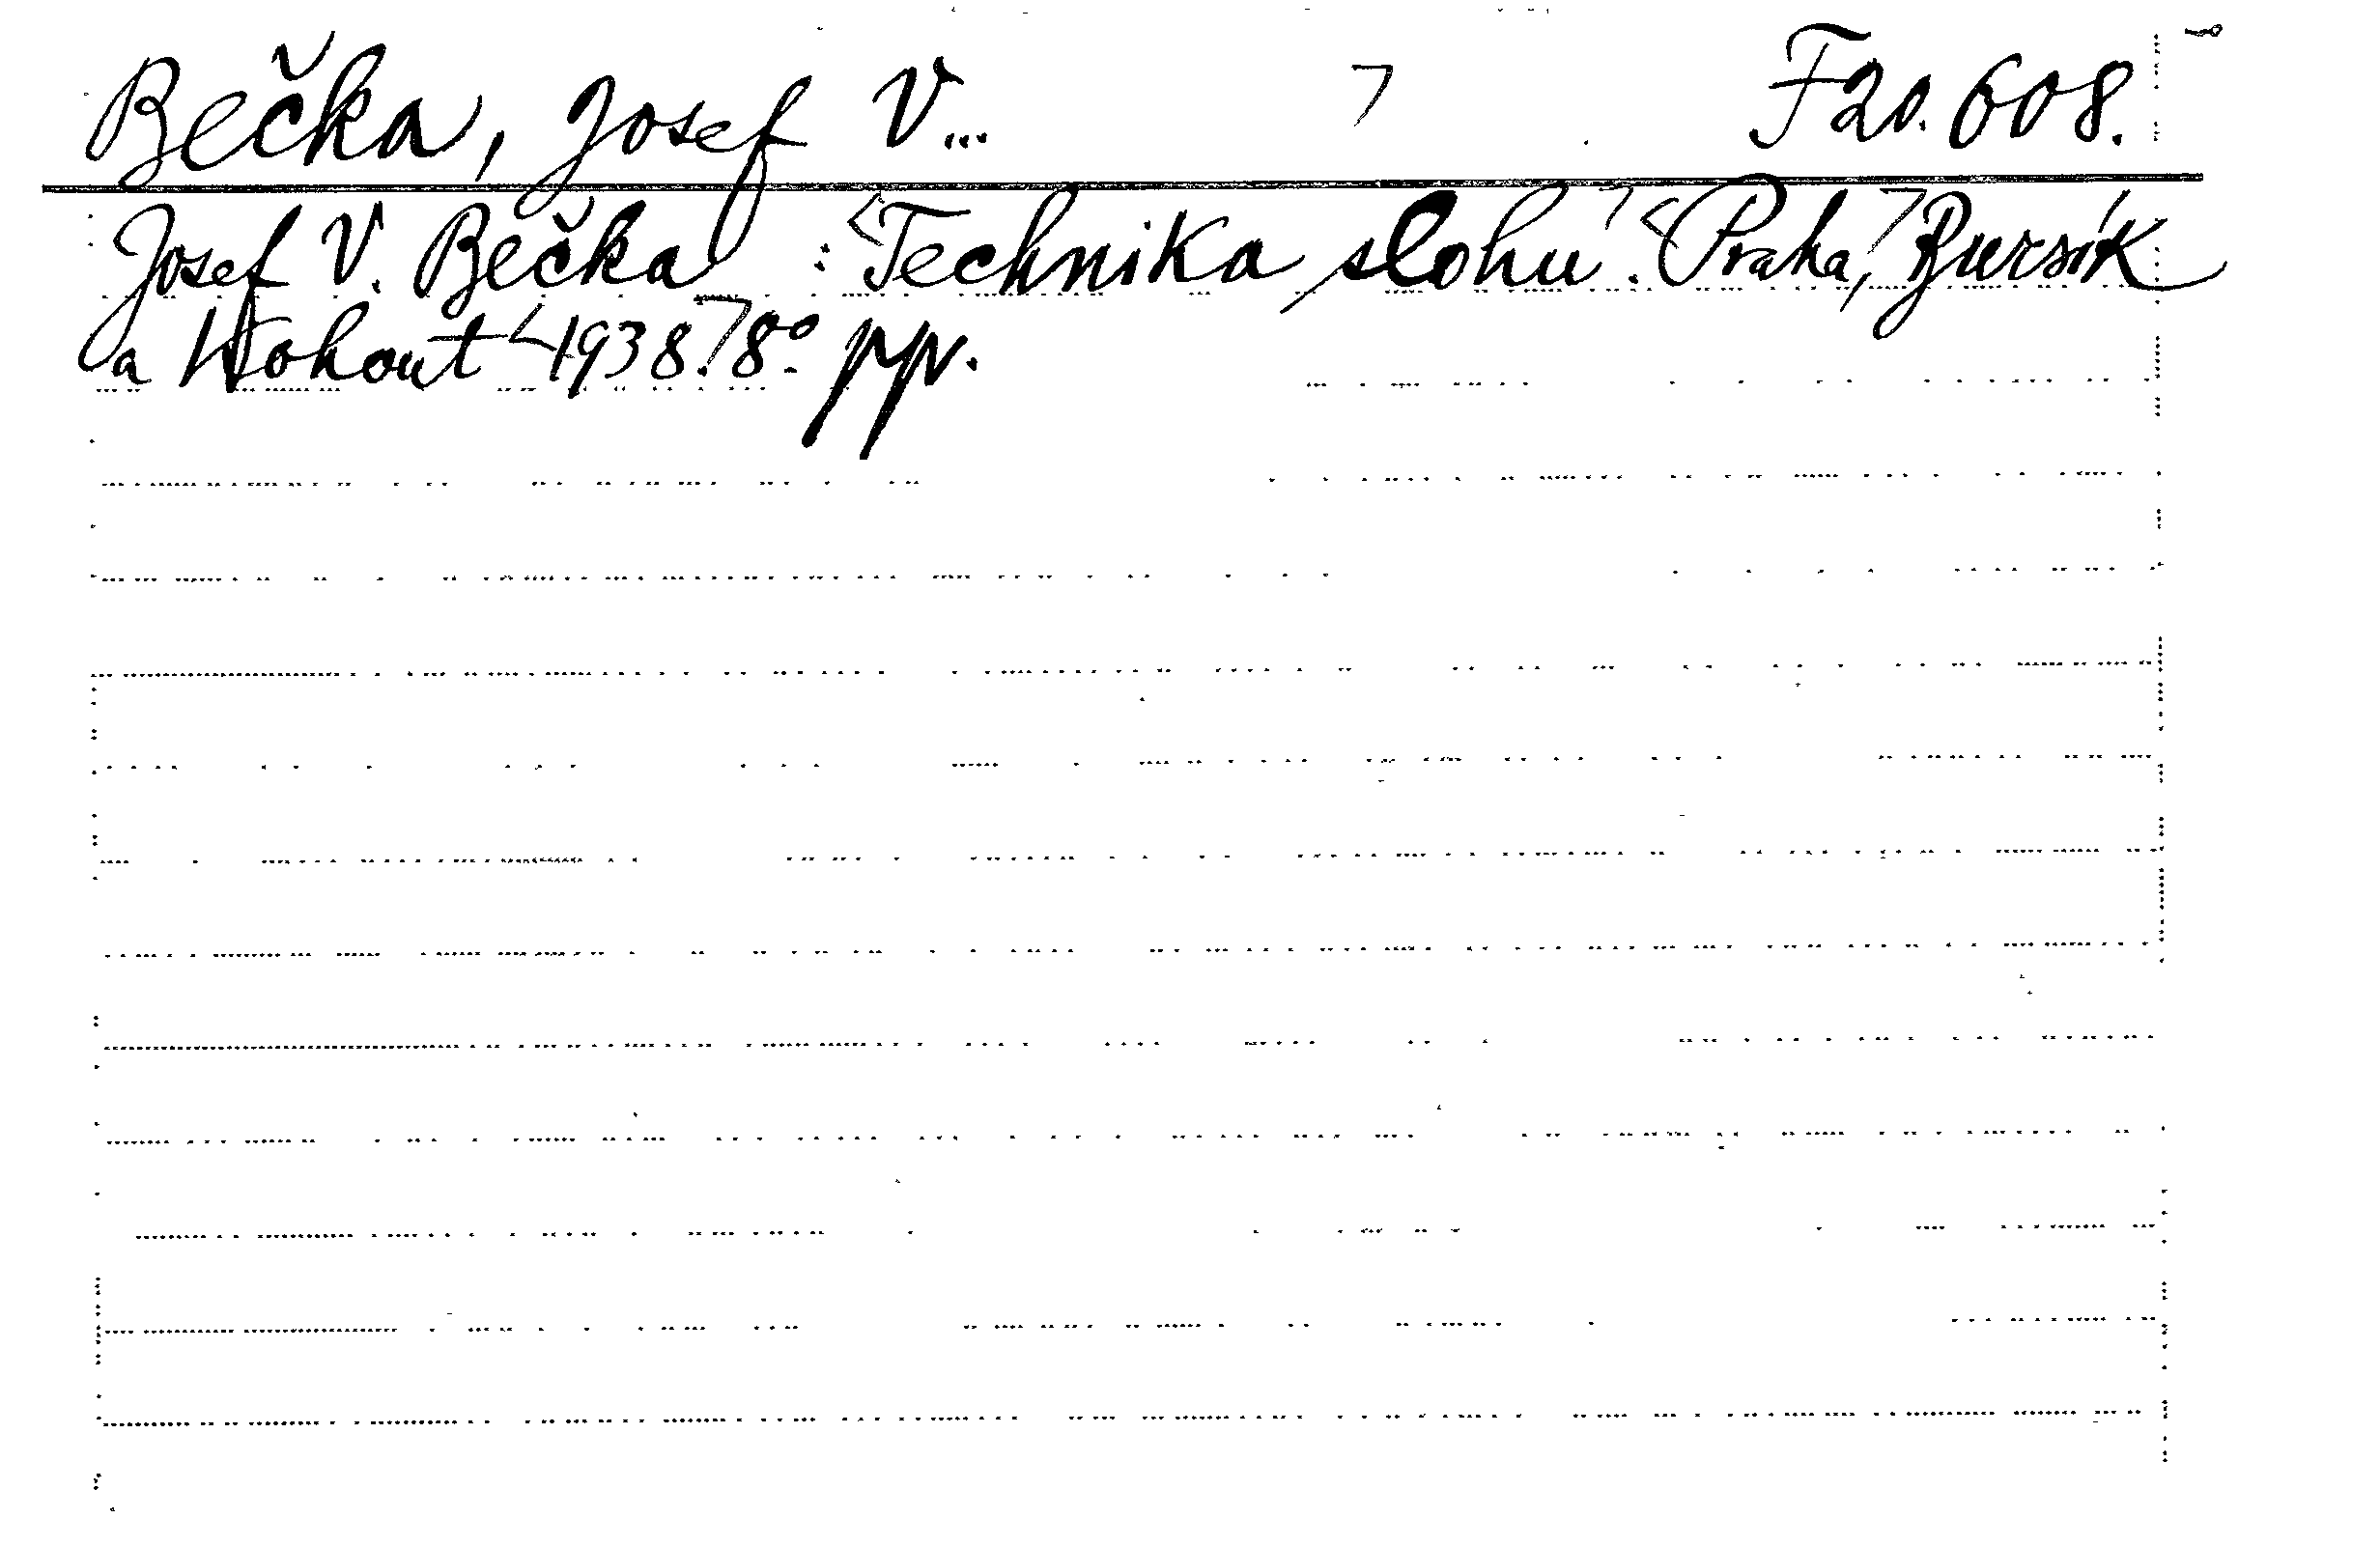 Bečka, Josef V... F20.608.
Josef V. Bečka : Technika slohu. Praha, Bursík
a Kohout 1938. 8° pp.